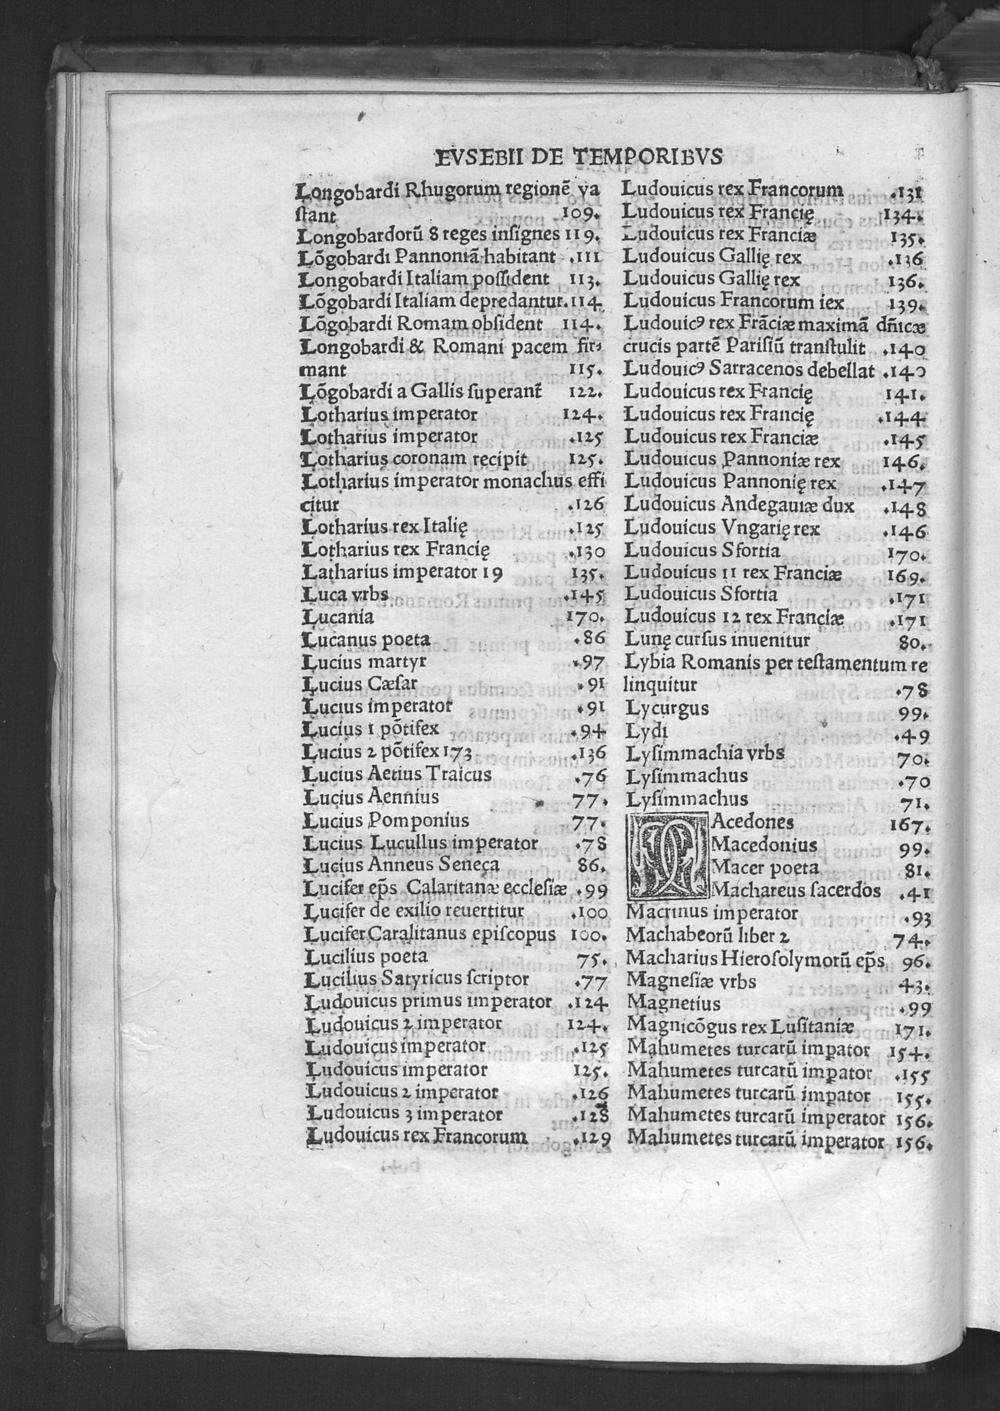 EVSEBII DE TEMPORIBVS
Longobardi Rhugorum regionẽ va
ſtant 109.
Longobardorũ 8 reges inſignes 119.
Lõgobardi Pannoniã habitant .111
Longobardi Italiam poſſident 113.
Lõgobardi Italiam depredantur. 114
Lõgobardi Romam obſident 114.
Longobardi & Romani pacem fir
mant 115.
Lõgobardi a Gallis ſuperant̃ 122.
Lotharius imperator 124.
Lotharius imperator .125
Lotharius coronam recipit 125.
Lotharius imperator monachus effi
citur .126
Lotharius rex Italię .125
Lotharius rex Francię .130
Latharius imperator 19 135.
Luca vrbs .145
Lucania 170.
Lucanus poeta .86
Lucius martyr .97
Lucius Cæſar .91
Lucius imperator .91
Lucius 1 põtifex .94
Lucius 2 põtifex 173 .136
Lucius Aetius Traicus .76
Lucius Aennius 77.
Lucius Pomponius 77.
Lucius Lucullus imperator .78
Lucius Anneus Seneca 86.
Lucifer ep̃s Calaritanæ eccleſiæ .99
Lucifer de exilio reuertitur .100
Lucifer Caralitanus epiſcopus 100.
Lucilius poeta 75.
Lucilius Satyricus ſcriptor .77
Ludouicus primus imperator .124
Ludouicus 2 imperator 124.
Ludouicus imperator .125
Ludouicus imperator 125.
Ludouicus 2 imperator .126
Ludouicus 3 imperator .128
Ludouicus rex Francorum .129
Ludouicus rex Francorum .131
Ludouicus rex Francię 134.
Ludouicus rex Franciæ 135.
Ludouicus Gallię rex .136
Ludouicus Gallię rex 136.
Ludouicus Francorum iex 139.
Ludouicꝰ rex Frãciæ maximã dñicæ
crucis partẽ Pariſiũ tranſtulit .140
Ludouicꝰ Sarracenos debellat .140
Ludouicus rex Francię 141.
Ludouicus rex Francię .144
Ludouicus rex Franciæ .145
Ludouicus Pannoniæ rex 146.
Ludouicus Pannonię rex .147
Ludouicus Andegauiæ dux .148
Ludouicus Vngarię rex .146
Ludouicus Sfortia 170.
Ludouicus 11 rex Franciæ 169.
Ludouicus Sfortia .171
Ludouicus 12 rex Franciæ .171
Lunę curſus inuenitur 80.
Lybia Romanis per teſtamentum re
linquitur .78
Lycurgus 99.
Lydi .49
Lyſimmachia vrbs 70.
Lyſimmachus .70
Lyſimmachus 71.
MAcedones 167.
Macedonius 99.
Macer poeta 81.
Machareus ſacerdos .41
Macrinus imperator .93
Machabeorũ liber 2 74.
Macharius Hieroſolymorũ ep̃s 96.
Magneſiæ vrbs 43.
Magnetius .99
Magnicõgus rex Luſitaniæ 171.
Mahumetes turcarũ imꝑator 154.
Mahumetes turcarũ imꝑator .155
Mahumetes turcarũ imꝑator 155.
Mahumetes turcarũ imperator 156.
Mahumetes turcarũ imperator 156.